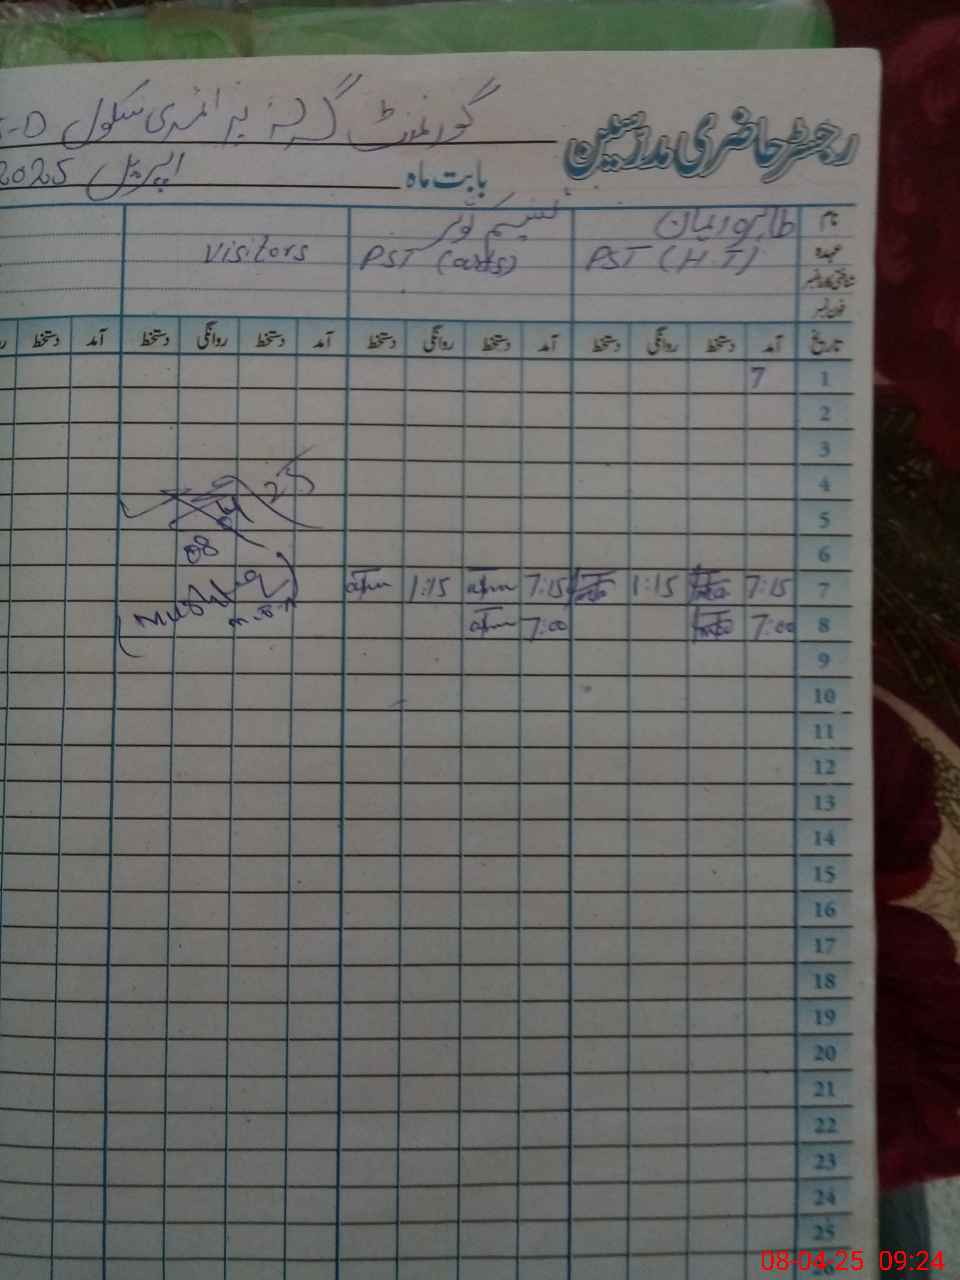 رجسٹر حاضری مدرسین گورنمنٹ گرلز پرائمری سکول
بابت ماہ اپریل 2025
نام
عہدہ PST (H.T) PST (arts) Visitors
شناختی کارڈ نمبر
فون نمبر
تاریخ آمد دستخط روانگی دستخط آمد دستخط روانگی دستخط آمد دستخط روانگی دستخط آمد دستخط
1 7
2
3
4
5
6
7 7:15 1:15 7:15 1:15
8 7:00 7:00
9
10
11
12
13
14
15
16
17
18
19
20
21
22
23
24
25
26
08 04 25
08-04-25 09:24